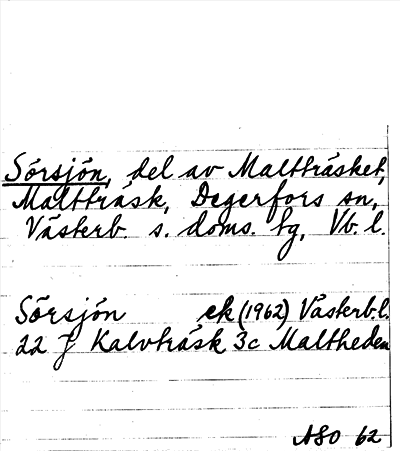 Sörsjön, del av Malträsket,
Malträsk, Degerfors sn,
Västerb. s. doms. tg, Vb. l.
Sörsjön ek (1962) Västerb. l.
22 J Kalvträsk 3c Maltheden
ASO 62